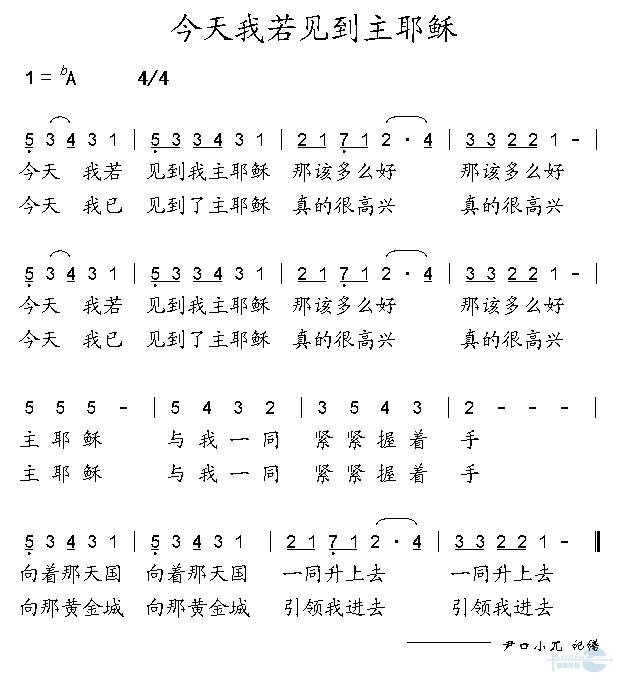 今天我若见到主耶稣
1 = ᵇA 4/4
5 3 4 3 1 | 5 3 3 4 3 1 | 2 1 7 1 2 · 4 | 3 3 2 2 1 - |
今天 我若 见到我主耶稣 那该多么好 那该多么好
今天 我已 见到了主耶稣 真的很高兴 真的很高兴
5 3 4 3 1 | 5 3 3 4 3 1 | 2 1 7 1 2 · 4 | 3 3 2 2 1 - |
今天 我若 见到我主耶稣 那该多么好 那该多么好
今天 我已 见到了主耶稣 真的很高兴 真的很高兴
5 5 5 - | 5 4 3 2 | 3 5 4 3 | 2 - - - |
主 耶 稣 与 我 一 同 紧 紧 握 着 手
主 耶 稣 与 我 一 同 紧 紧 握 着 手
5 3 4 3 1 | 5 3 4 3 1 | 2 1 7 1 2 · 4 | 3 3 2 2 1 - ‖
向着那天国 向着那天国 一同升上去 一同升上去
向那黄金城 向那黄金城 引领我进去 引领我进去
尹口小兀 记谱